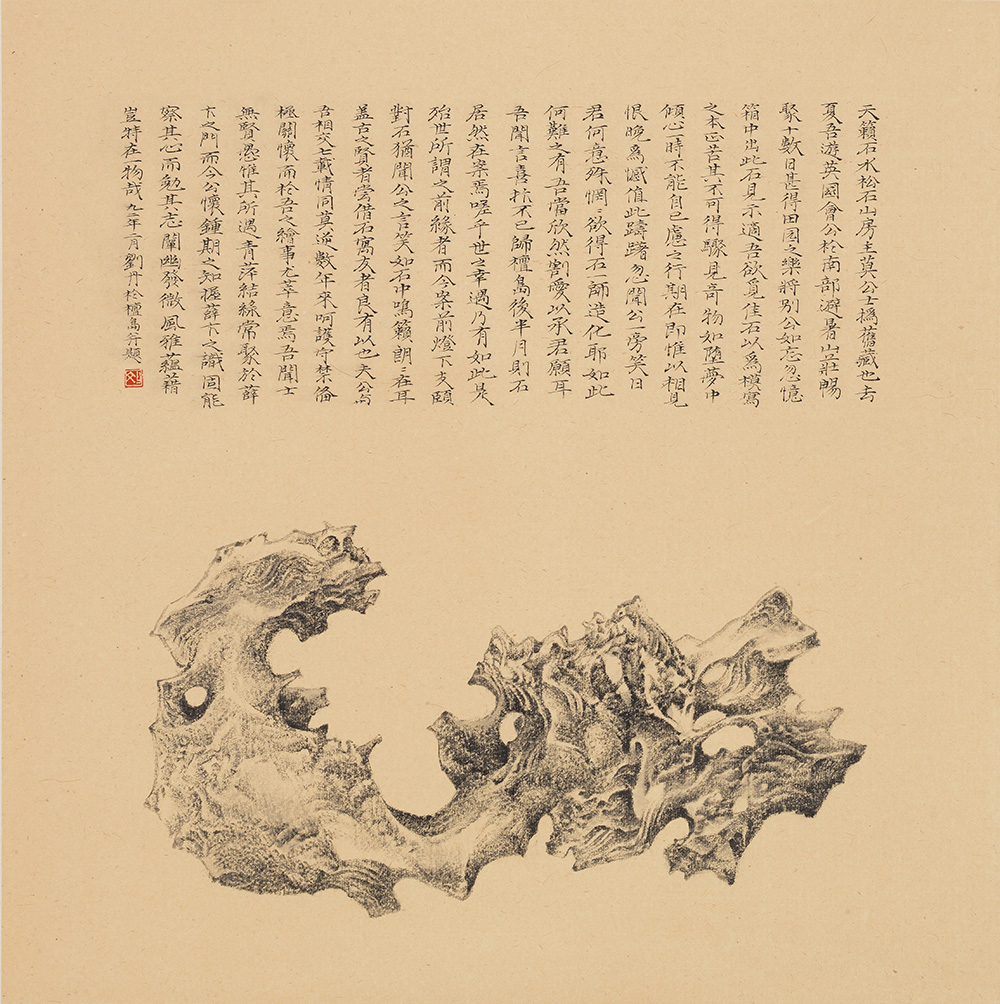 天籟石水松石山房主莫公士撝舊藏也去
夏吾游英國會公於南部避暑山莊賜
聚十數日甚得田園之樂將別公如忘忽憶
箱中出此石見示適吾欲覓佳石以爲模寫
之本正苦其不可得驟見奇物如墮夢中
傾心時不能自已慮之行期在即惟以相見
恨晚爲憾值此躊躇忽聞公一旁笑曰
君何意殊惘惘欲得石一師造化耶如此
何難之有吾當欣然割愛以承君願耳
吾聞言喜抃不已歸檀島後半月則石
居然在案焉嗟乎世之幸遇乃有如此是
殆世所謂之前緣者而今案前燈下支頤
對石猶聞公之言笑如石中鳴籟朗朗在耳
蓋古之賢者嘗借石寓友者良有以也夫公与
吾相交七載情同莫逆數年來呵護守禁備
極關懷而於吾之繪事尤萃意焉吾聞士
無賢愚惟其所遇青萍結綠常聚於薛
卞之門而今公懷鍾期之知握薛卞之識固能
察其心而勉其志闡幽發微風雅蘊藉
豈特在一物哉九二年二月劉丹於檀島並題